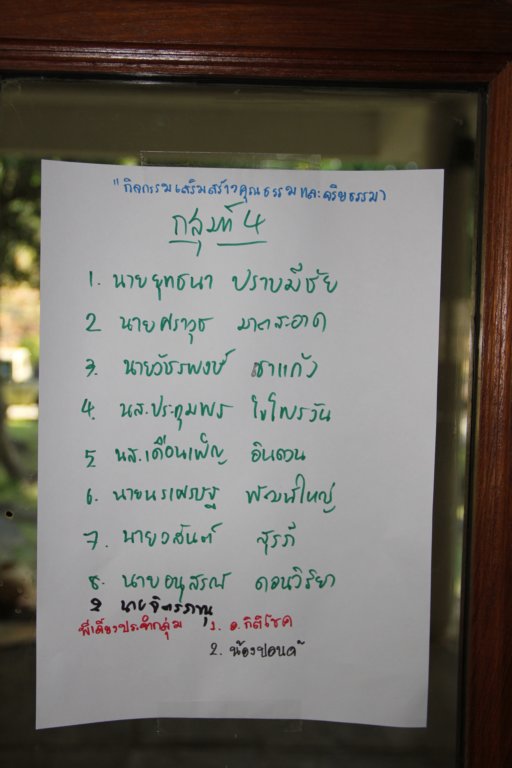 "กิจกรรมเสริมสร้างคุณธรรมและจริยธรรม"
กลุ่มที่ 4
1. นายยุทธนา ปราบมีชัย
2 นายศราวุธ มาตสะอาด
3. นายวัชรพงษ์ เขาแก้ว
4. นส.ประทุมพร ใยไพรวัน
5. นส.เดือนเพ็ญ อินตวน
6. นายนรเศรษฐ พัฒน์ใหญ่
7. นายวสันต์ สุรภี
8. นายอนุสรณ์ ดอนวิริยา
9 นายจิตรภาณุ
พี่เลี้ยงประจำกลุ่ม 1. อ.กิตติโชค
2. น้องปอนด์